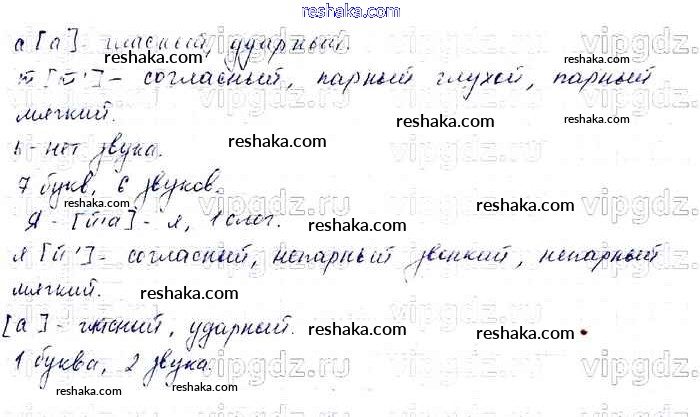 reshaka.com
а [а] - гласный, ударный.
reshaka.com
т [т'] - согласный, парный глухой, парный
мягкий.
reshaka.com
reshaka.com
ь - нет звука.
reshaka.com
7 букв, 6 звуков.
reshaka.com
reshaka.com
Я - [й'а] - я, 1 слог.
reshaka.com
я [й'] - согласный, непарный звонкий, непарный
мягкий.
reshaka.com
reshaka.com
[а] - гласный, ударный.
reshaka.com
reshaka.com
1 буква, 2 звука.
reshaka.com
vipgdz.ru
vipgdz.ru
vipgdz.ru